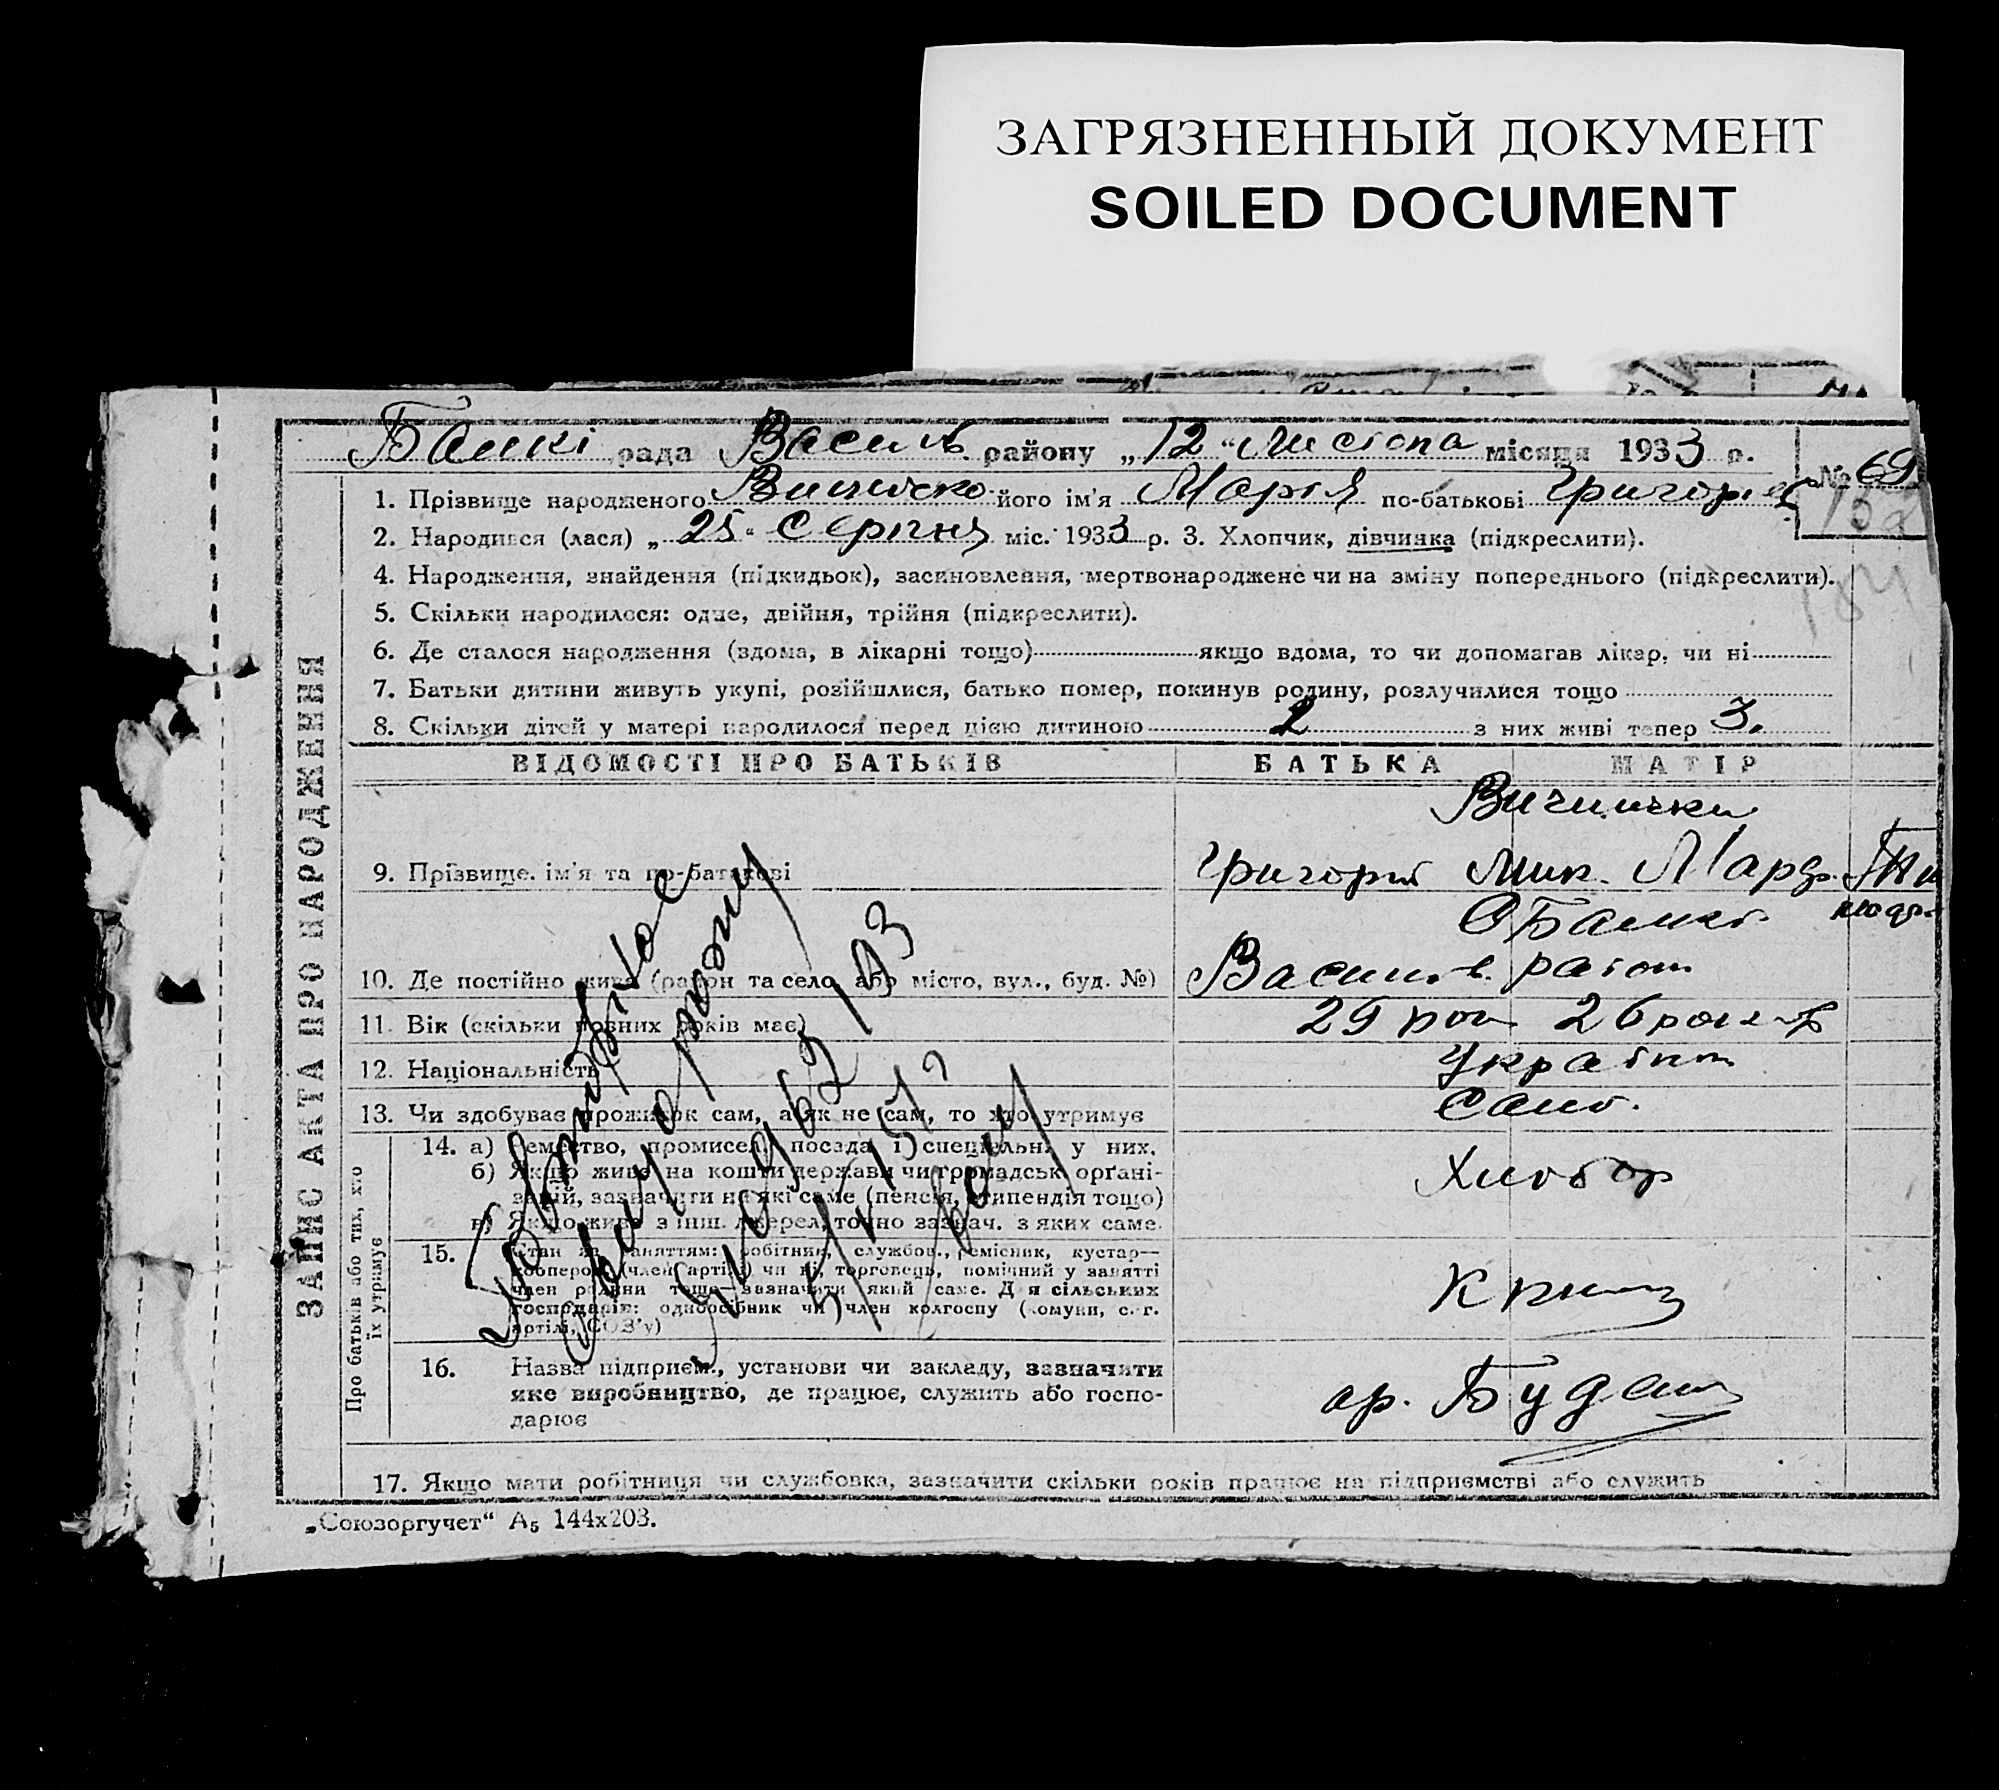 ЗАГРЯЗНЕННЫЙ ДОКУМЕНТ
SOILED DOCUMENT
Балкі рада Васил. району „12“ Листопа місяця 1933 р.
№ 69
1. Прізвище народженого його ім'я Марія по-батькові Григорів
2. Народився (лася) „25“ Серпня міс. 1933 р. 3. Хлопчик, дівчинка (підкреслити).
4. Народження, знайдення (підкидьок), засиновлення, мертвонароджене чи на зміну попереднього (підкреслити).
184
5. Скільки народилося: одне, двійня, трійня (підкреслити).
6. Де сталося народження (вдома, в лікарні тощо) якщо вдома, то чи допомагав лікар, чи ні
7. Батьки дитини живуть укупі, розійшлися, батько помер, покинув родину, розлучилися тощо
8. Скільки дітей у матері народилося перед цією дитиною 2 з них живі тепер 3.
ЗАПИС АКТА ПРО НАРОДЖЕННЯ
ВІДОМОСТІ ПРО БАТЬКІВ БАТЬКА МАТІР
9. Прізвище, ім'я та по-батькові Григорій Мик.
С Балки
10. Де постійно живе (район та село або місто, вул., буд. №) Васил. район
11. Вік (скільки повних років має) 29 рок 26 років
12. Національність Україн
13. Чи здобуває прожиток сам, а як не сам, то хто утримує Само.
Про батьків або тих, хто їх утримує
14. а) Ремество, промисел, посада і спеціяльн. у них.
б) Якщо живе на кошти держави чи громадськ. органі-
зацій, зазначити на які саме (пенсія, стипендія тощо)
в) Якщо живе з інш. джерел, точно зазнач. з яких саме.
Хлібор
15. Стан за заняттям: робітник, службов., ремісник, кустар—
кооперов. (член артілі) чи ні, торговець, помічний у занятті
член родини тощо—зазначити який саме. Для сільських
господарів: одноосібник чи член колгоспу (комуни, с.-г.
артілі, СОЗ'у)
16. Назва підприєм., установи чи закладу, зазначити
яке виробництво, де працює, служить або госпо-
дарює
ар. Буден
17. Якщо мати робітниця чи службовка, зазначити скільки років працює на підприємстві або служить
„Союзоргучет“ А5 144х203.